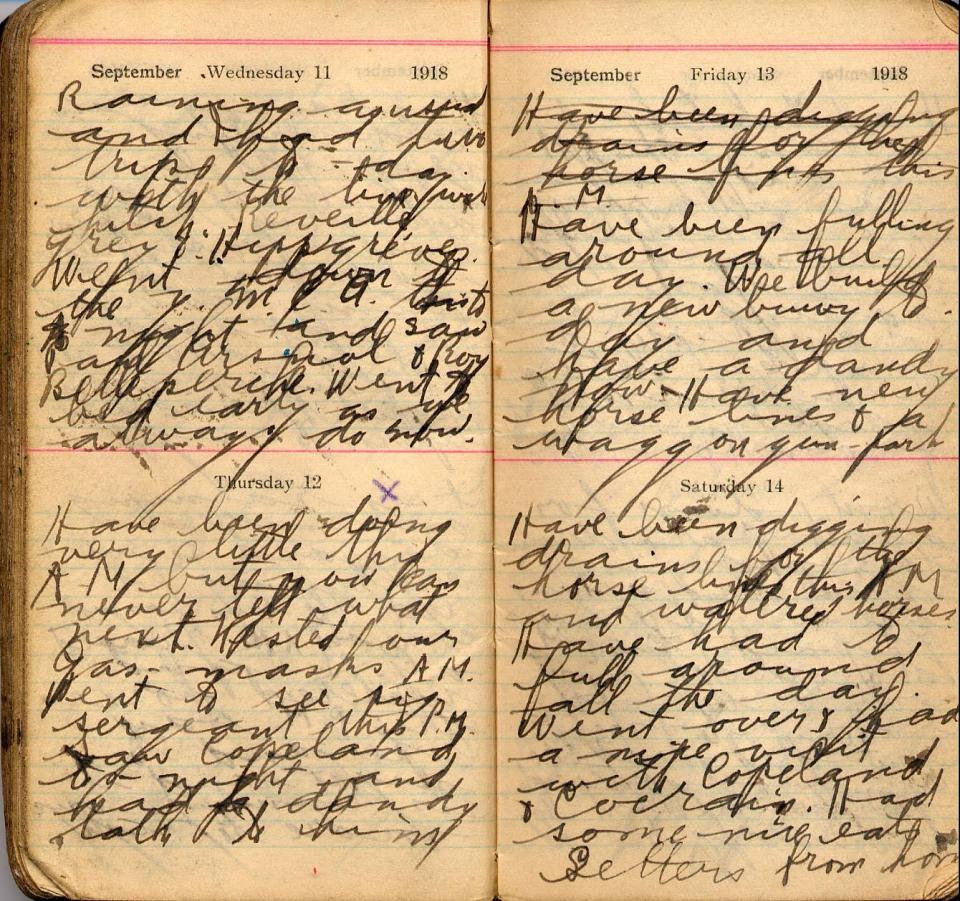 September Wednesday 11 1918
Raining around
and had two
trips to-day.
with the
Reveille
grey &
Went down to
the Y.M.C.A.
night and saw
& Roy
Went to
bed early as we
always do now.
Thursday 12
X
Have been doing
very little this
A M but you can
never tell what
next. Tested our
gas-masks A.M.
Went to see sig.
sergeant this P.M.
Saw Copeland
to night and
had a dandy
talk to him
September Friday 13 1918
Have been digging
drains for the
horse lines this
A. M.
Have been fulling
around all
day. We build
a new bivvy to-
day and
have a dandy
now. Have new
horse lines & a
waggon gun-park
Saturday 14
Have been digging
drains for the
horse lines this A.M
and watered horses.
Have had to
full around
all the day.
Went over & had
a nice visit
with Copeland
& Cochrain. Had
some nice eats
Letters from home